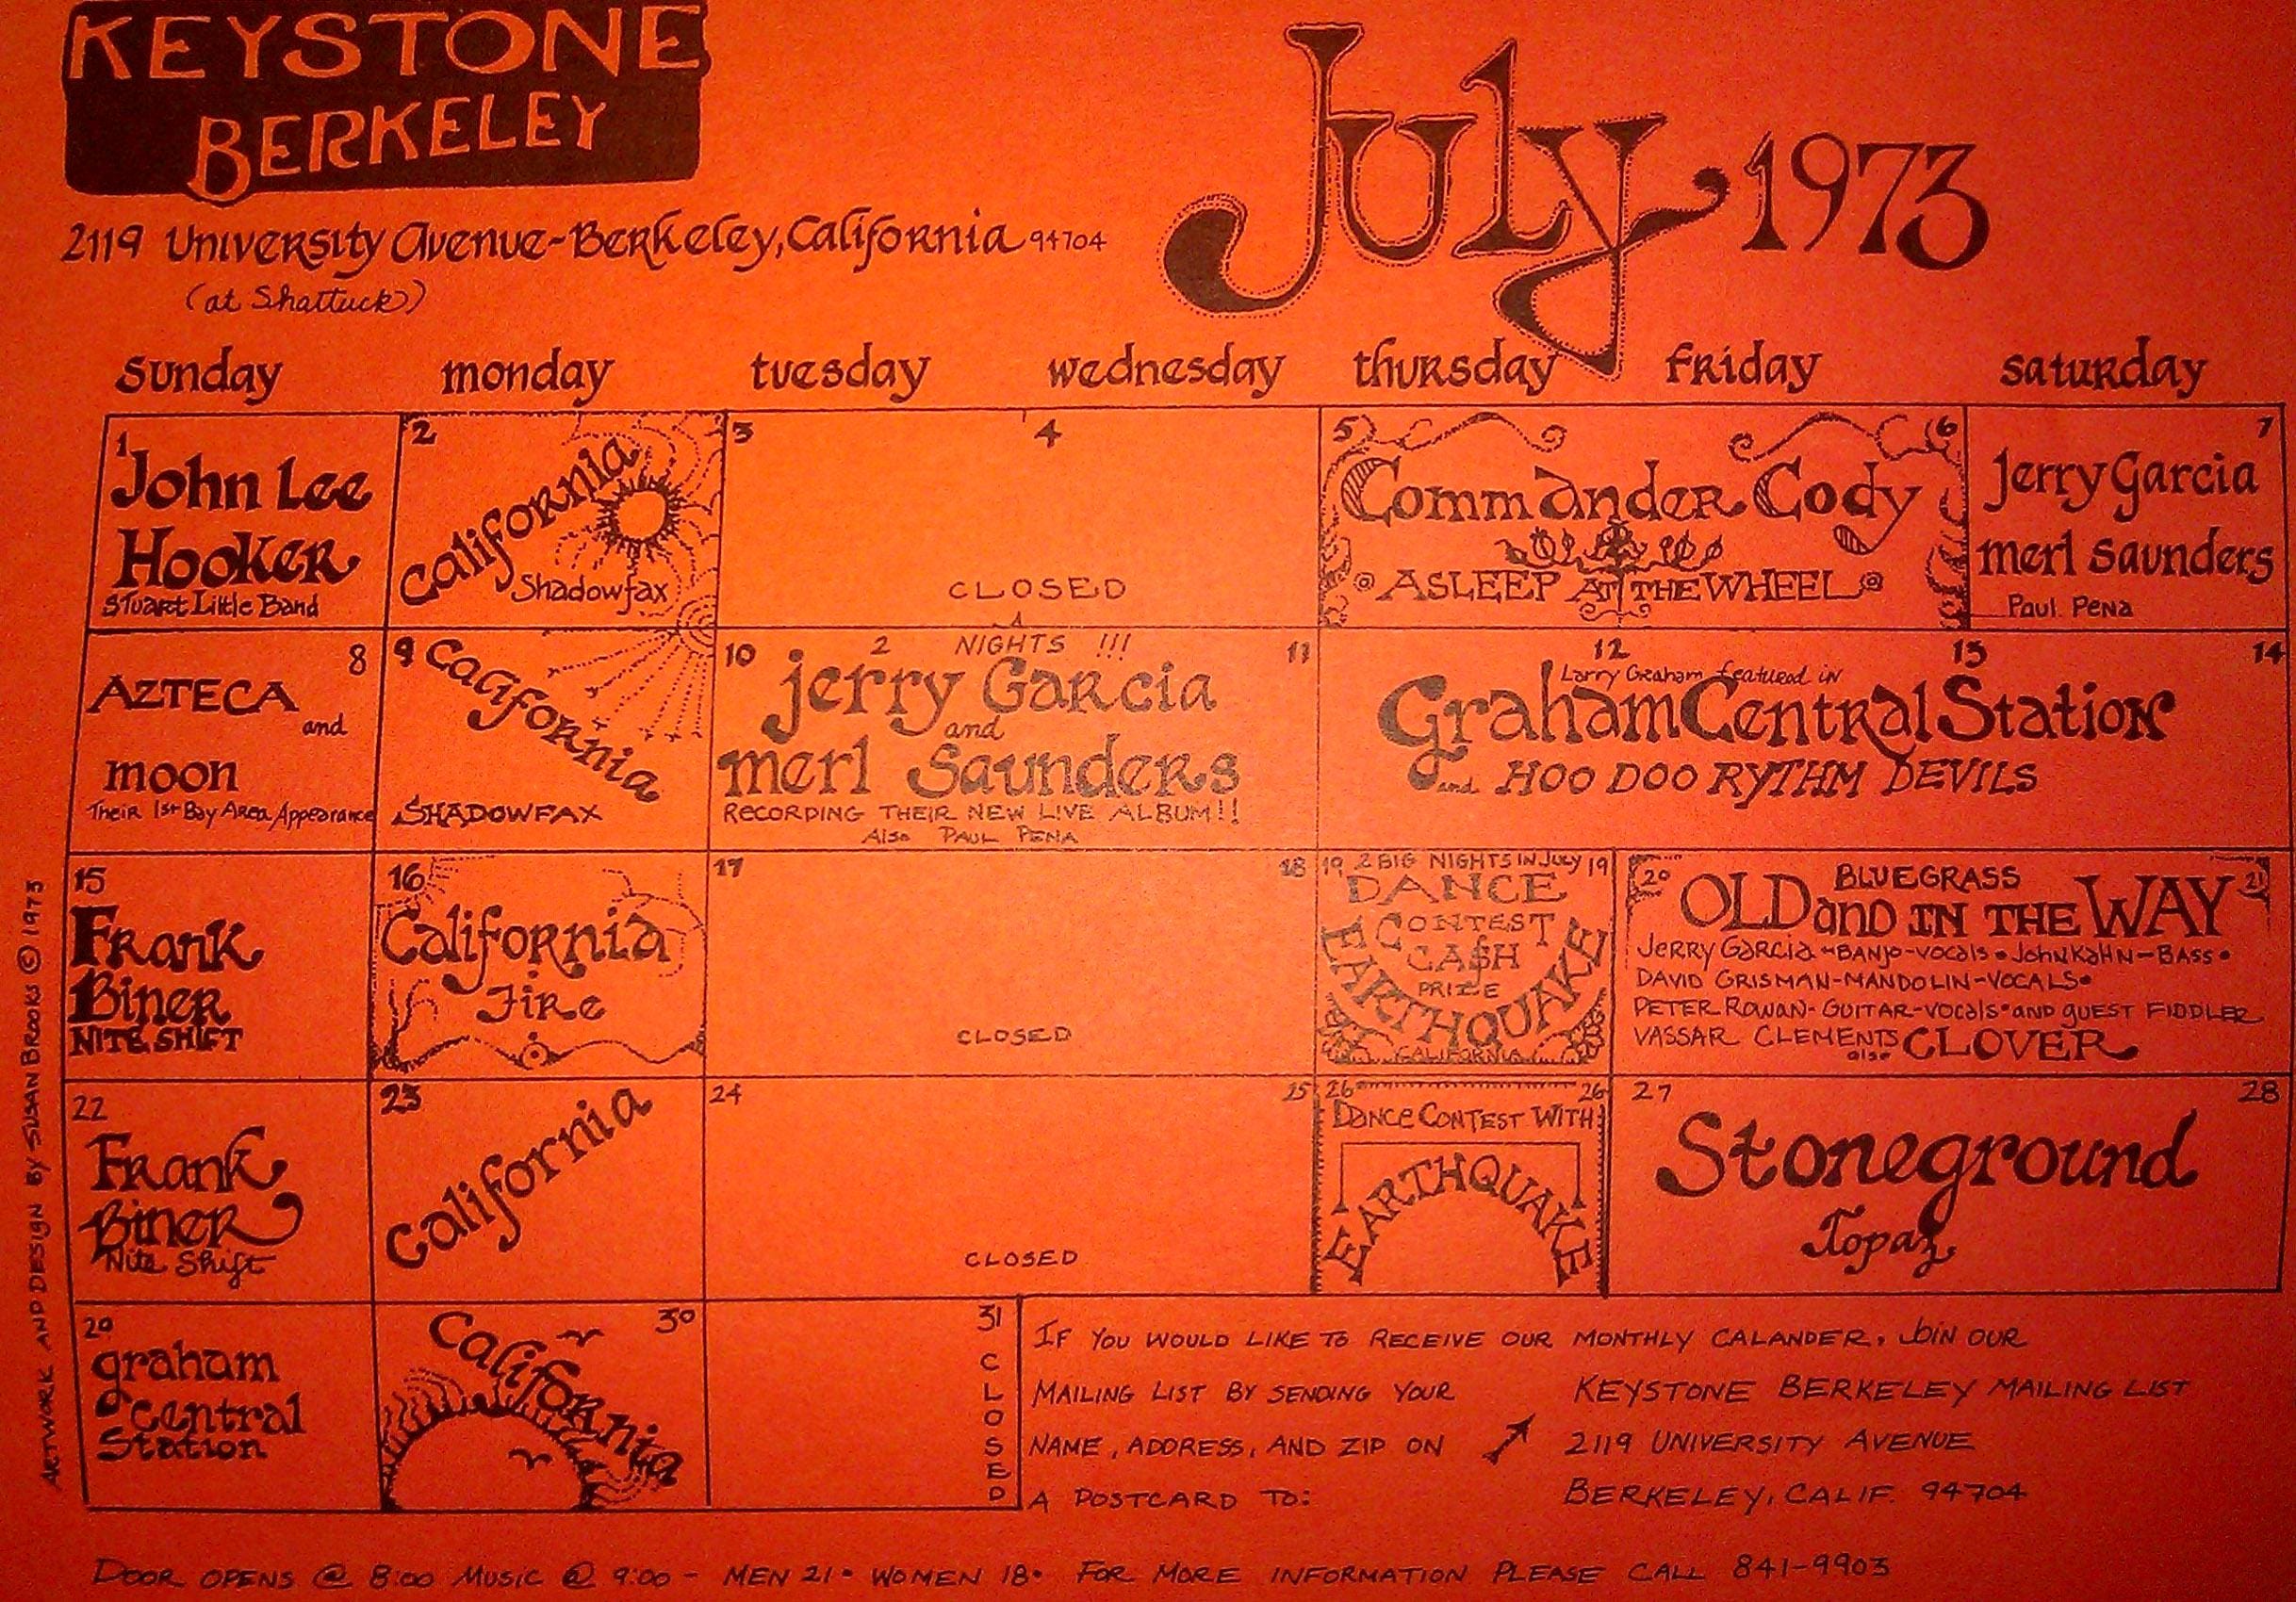 KEYSTONE
BERKELEY
July 1973
2119 University Avenue-Berkeley, California 94704
(at Shattuck)
sunday monday tuesday wednesday thursday friday saturday
1
John Lee
Hooker
Stuart Little Band
2
California
Shadowfax
3 4
CLOSED
5 6
Commander Cody
ASLEEP AT THE WHEEL
7
Jerry Garcia
merl saunders
Paul Pena
8
AZTECA
and
moon
Their 1st Bay Area Appearance
9
California
SHADOWFAX
10 11
2 NIGHTS !!!
jerry Garcia
and
merl Saunders
RECORDING THEIR NEW LIVE ALBUM!!
Also PAUL PENA
12 13 14
Larry Graham featured in
Graham Central Station
and HOO DOO RYTHM DEVILS
15
Frank
Biner
NITE SHIFT
16
California
Fire
17 18
CLOSED
19 2 BIG NIGHTS IN JULY 19
DANCE
CONTEST
CA$H
PRIZE
EARTHQUAKE
CALIFORNIA
20 21
BLUEGRASS
OLD and IN THE WAY
Jerry Garcia-BANJO-vocals • John Kahn-BASS •
DAVID GRISMAN-MANDOLIN-VOCALS •
PETER ROWAN-GUITAR-vocals • AND GUEST FIDDLER
VASSAR CLEMENTS
also CLOVER
22
Frank
Biner
Nite Shift
23
California
24 25
CLOSED
26 26
Dance Contest With:
EARTHQUAKE
27 28
Stoneground
Topaz
29
graham
central
Station
30
California
31
CLOSED
IF YOU WOULD LIKE TO RECEIVE OUR MONTHLY CALANDER, JOIN OUR
MAILING LIST BY SENDING YOUR
NAME, ADDRESS, AND ZIP ON
A POSTCARD TO:
KEYSTONE BERKELEY MAILING LIST
2119 UNIVERSITY AVENUE
BERKELEY, CALIF. 94704
DOOR OPENS @ 8:00 MUSIC @ 9:00 - MEN 21 • WOMEN 18 • FOR MORE INFORMATION PLEASE CALL 841-9903
ARTWORK AND DESIGN BY SUSAN BROOKS © 1973